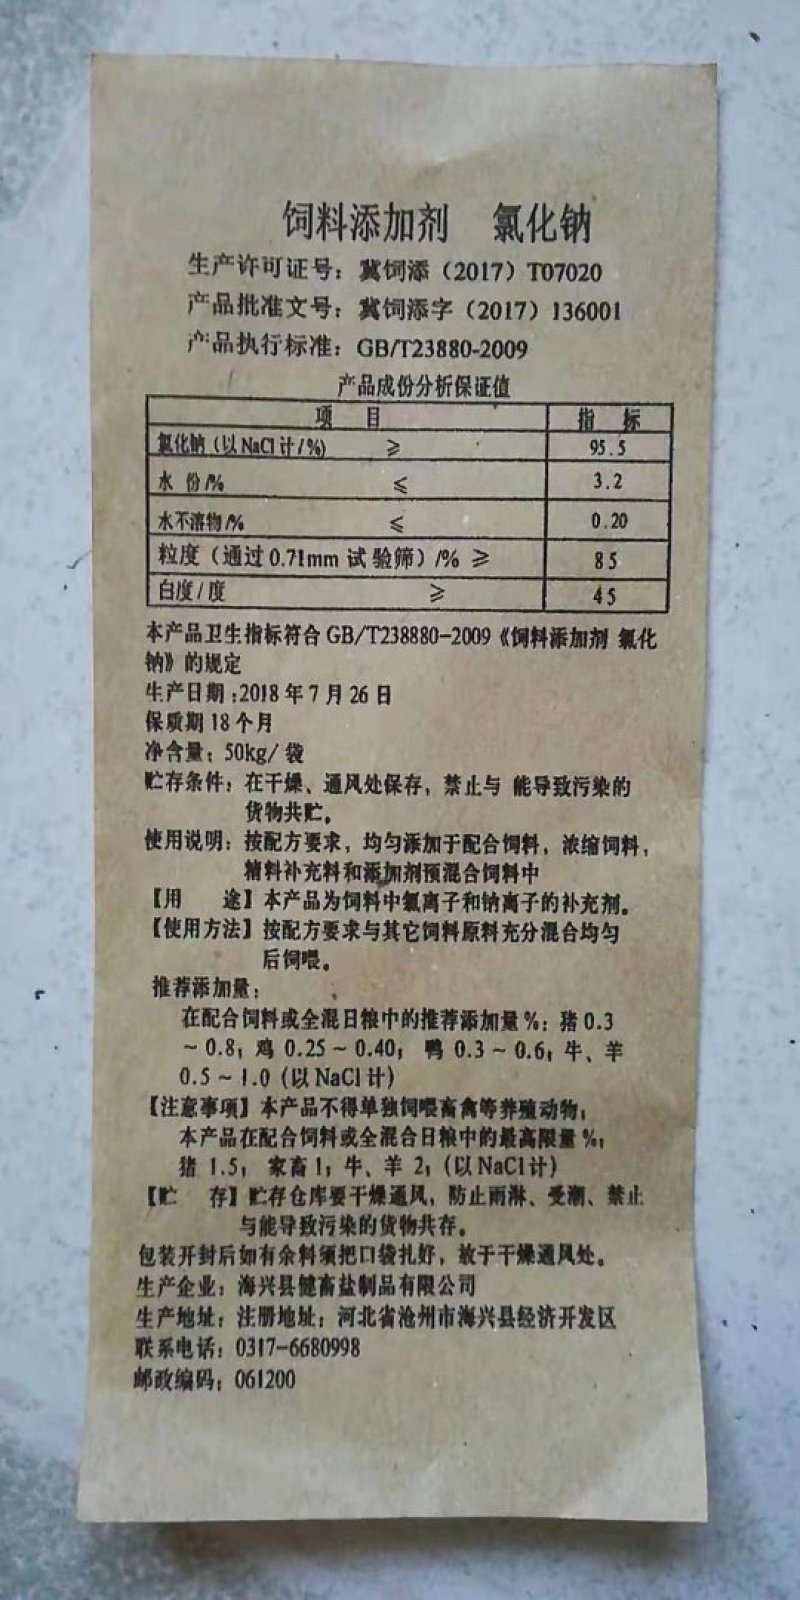 饲料添加剂 氯化钠
生产许可证号：冀饲添（2017）T07020
产品批准文号：冀饲添字（2017）136001
产品执行标准：GB/T23880-2009
产品成份分析保证值
项 目 指 标
氯化钠（以NaCl计/%） ≥ 95.5
水 份/% ≤ 3.2
水不溶物/% ≤ 0.20
粒度（通过0.71mm试验筛）/% ≥ 85
白度/度 ≥ 45
本产品卫生指标符合GB/T238880-2009《饲料添加剂 氯化
钠》的规定
生产日期：2018年7月26日
保质期18个月
净含量：50kg/袋
贮存条件：在干燥、通风处保存，禁止与 能导致污染的
货物共贮。
使用说明：按配方要求，均匀添加于配合饲料，浓缩饲料，
精料补充料和添加剂预混合饲料中
【用 途】本产品为饲料中氯离子和钠离子的补充剂。
【使用方法】按配方要求与其它饲料原料充分混合均匀
后饲喂。
推荐添加量：
在配合饲料或全混日粮中的推荐添加量%：猪0.3
~0.8；鸡 0.25~0.40； 鸭 0.3~0.6；牛、羊
0.5~1.0（以NaCl计）
【注意事项】本产品不得单独饲喂畜禽等养殖动物；
本产品在配合饲料或全混合日粮中的最高限量%；
猪 1.5； 家畜1；牛、羊 2；（以NaCl计）
【贮 存】贮存仓库要干燥通风，防止雨淋、受潮、禁止
与能导致污染的货物共存。
包装开封后如有余料须把口袋扎好，放于干燥通风处。
生产企业：海兴县健畜盐制品有限公司
生产地址：注册地址：河北省沧州市海兴县经济开发区
联系电话：0317-6680998
邮政编码：061200